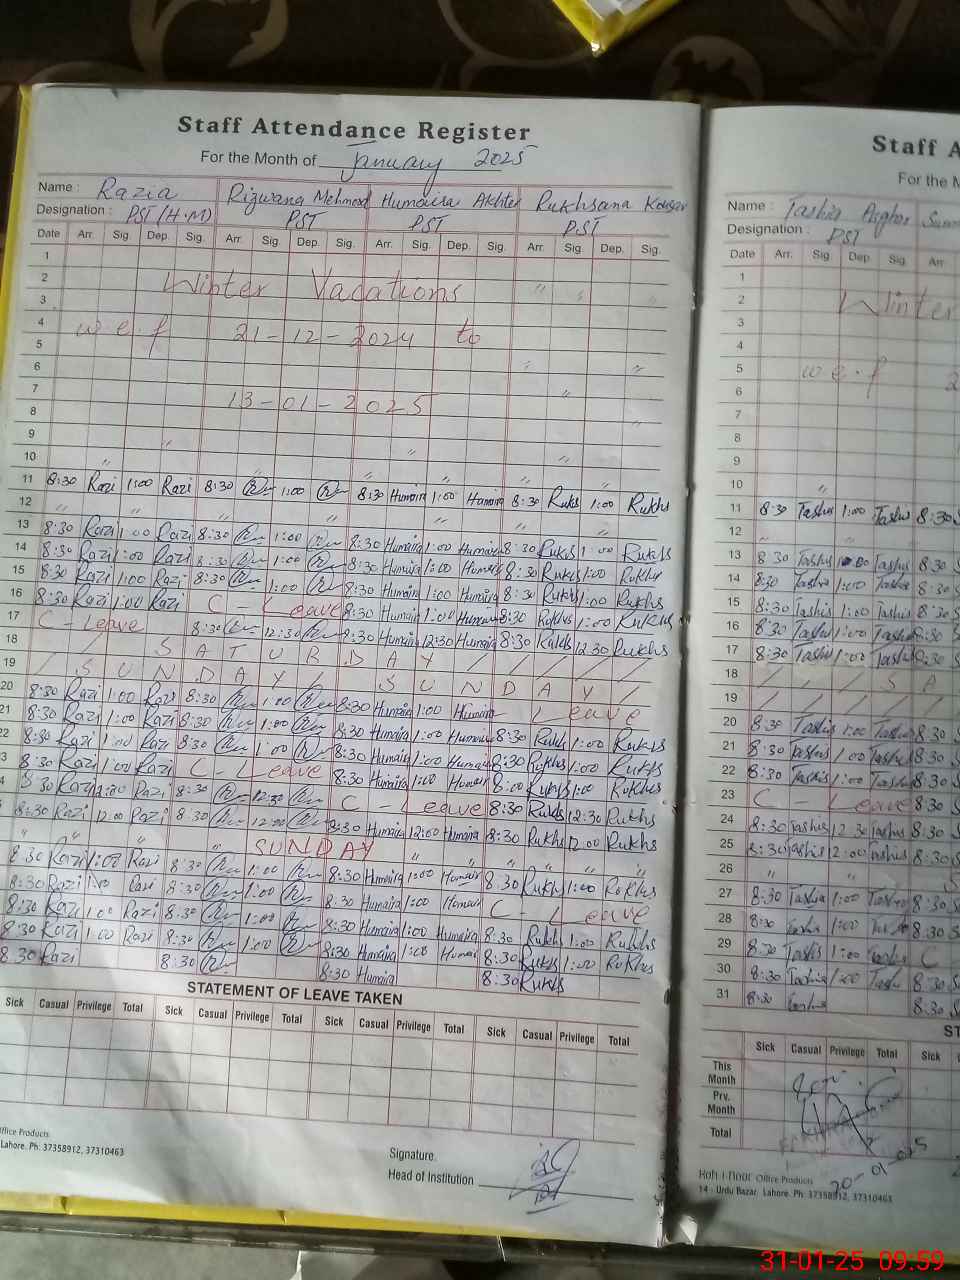 Staff Attendance Register
For the Month of January 2025
Name : Razia Rizwana Mehmood Humaira Akhter Rukhsana Kausar
Designation : PST (H.M) PST PST PST
Date Arr. Sig. Dep. Sig. Arr. Sig. Dep. Sig. Arr. Sig. Dep. Sig. Arr. Sig. Dep. Sig.
1
2 Winter Vacations
3
4 w.e.f 21-12-2024 to
5
6
7
8 13-01-2025
9
10
11 8:30 Razi 1:00 Razi 8:30 1:00 8:30 Humaira 1:00 Humaira 8:30 Rukhs 1:00 Rukhs
12
13 8:30 Razi 1:00 Razi 8:30 1:00 8:30 Humaira 1:00 Humaira 8:30 Rukhs 1:00 Rukhs
14 8:30 Razi 1:00 Razi 8:30 1:00 8:30 Humaira 1:00 Humaira 8:30 Rukhs 1:00 Rukhs
15 8:30 Razi 1:00 Razi 8:30 1:00 8:30 Humaira 1:00 Humaira 8:30 Rukhs 1:00 Rukhs
16 8:30 Razi 1:00 Razi C - Leave 8:30 Humaira 1:00 Humaira 8:30 Rukhs 1:00 Rukhs
17 C - Leave 8:30 12:30 8:30 Humaira 12:30 Humaira 8:30 Rukhs 12:30 Rukhs
18 / / / SATURDAY / / / /
19 / SUNDAY / SUNDAY /
20 8:30 Razi 1:00 Razi 8:30 1:00 8:30 Humaira 1:00 Humaira Leave
21 8:30 Razi 1:00 Razi 8:30 1:00 8:30 Humaira 1:00 Humaira 8:30 Rukhs 1:00 Rukhs
22 8:30 Razi 1:00 Razi 8:30 1:00 8:30 Humaira 1:00 Humaira 8:30 Rukhs 1:00 Rukhs
3 8:30 Razi 1:00 Razi C - Leave 8:30 Humaira 1:00 Humaira 8:00 Rukhs 1:00 Rukhs
4 8:30 Razi 12:30 Razi 8:30 12:30 C - Leave 8:30 Rukhs 12:30 Rukhs
8:30 Razi 12:00 Razi 8:30 12:00 8:30 Humaira 12:00 Humaira 8:30 Rukhs 12:00 Rukhs
SUNDAY
8:30 Razi 1:00 Razi 8:30 1:00 8:30 Humaira 1:00 Humaira 8:30 Rukhs 1:00 Rukhs
8:30 Razi 1:00 Razi 8:30 1:00 8:30 Humaira 1:00 Humaira C - Leave
8:30 Razi 1:00 Razi 8:30 1:00 8:30 Humaira 1:00 Humaira 8:30 Rukhs 1:00 Rukhs
8:30 Razi 1:00 Razi 8:30 1:00 8:30 Humaira 1:00 Humaira 8:30 Rukhs 1:00 Rukhs
8:30 Razi 8:30 8:30 Humaira 8:30 Rukhs
STATEMENT OF LEAVE TAKEN
Sick Casual Privilege Total Sick Casual Privilege Total Sick Casual Privilege Total Sick Casual Privilege Total
ffice Products
Lahore. Ph: 37358912, 37310463
Signature.
Head of Institution
Staff A
For the M
Name : Tashia Asghar
Designation : PST
Date Arr. Sig. Dep. Sig. Arr
1
2 Winter
3
4
5 w.e.f 2
6
7
8
9
10
11 8:30 Tashis 1:00 Tashis 8:30
12
13 8:30 Tashis 1:00 Tashis 8:30
14 8:30 Tashis 1:00 Tashis 8:30
15 8:30 Tashis 1:00 Tashis 8:30
16 8:30 Tashis 1:00 Tashis 8:30
17 8:30 Tashis 1:00 Tashis 8:30
18 / / / S A
19 / / / / /
20 8:30 Tashis 1:00 Tashis 8:30
21 8:30 Tashis 1:00 Tashis 8:30
22 8:30 Tashis 1:00 Tashis 8:30
23 C - Leave 8:30
24 8:30 Tashis 12:30 Tashis 8:30
25 8:30 Tashis 12:00 Tashis 8:30
26 S
27 8:30 Tashis 1:00 Tashis 8:30
28 8:30 Tashis 1:00 8:30
29 8:30 Tashis 1:00 Tashis C
30 8:30 Tashis 1:00 Tashis 8:30
31 8:30 Tashis 8:30
ST
Sick Casual Privilege Total Sick
This Month
Prv. Month
Total
30-01-025
Hoh-i-noor Office Products
14 - Urdu Bazar, Lahore. Ph: 37358912, 37310463
31-01-25 09:59